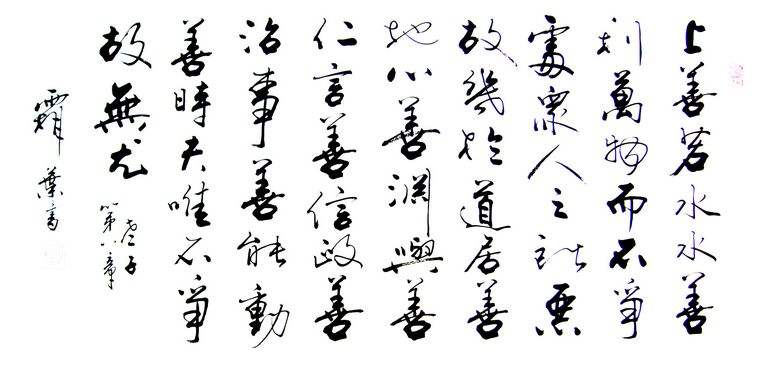 上善若水水善
利萬物而不爭
處衆人之所惡
故幾於道居善
地心善淵與善
仁言善信政善
治事善能動
善時夫唯不爭
故無尤
老子
第八章
葉